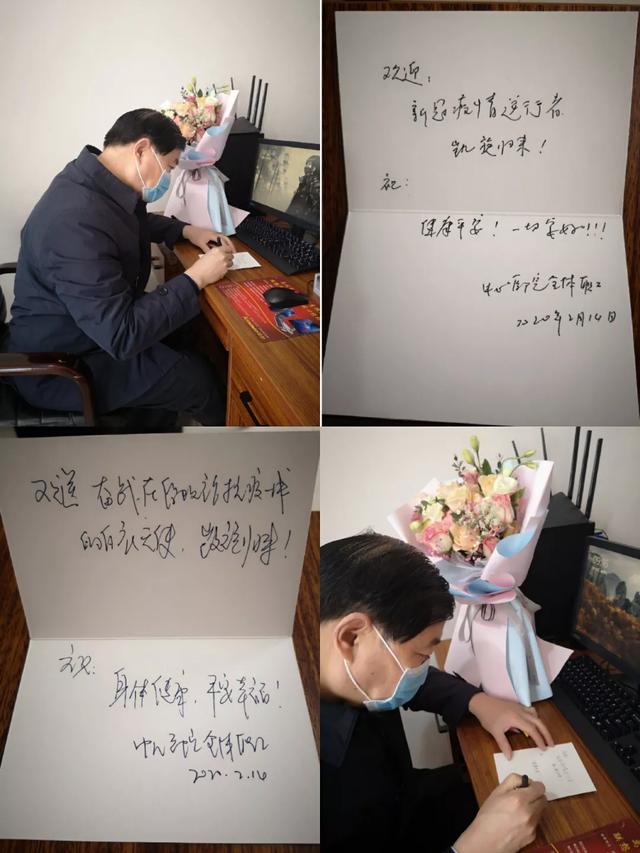 欢迎：
新冠疫情逆行者
凯旋归来！
祝：
健康平安！一切安好!!!
中心医院全体职工
2020年2月14日
欢迎 奋战在发热门诊抗疫一线
的白衣天使，凯旋归来！
祝：
身体健康，平安幸福！
中心医院全体职工
2020.2.14